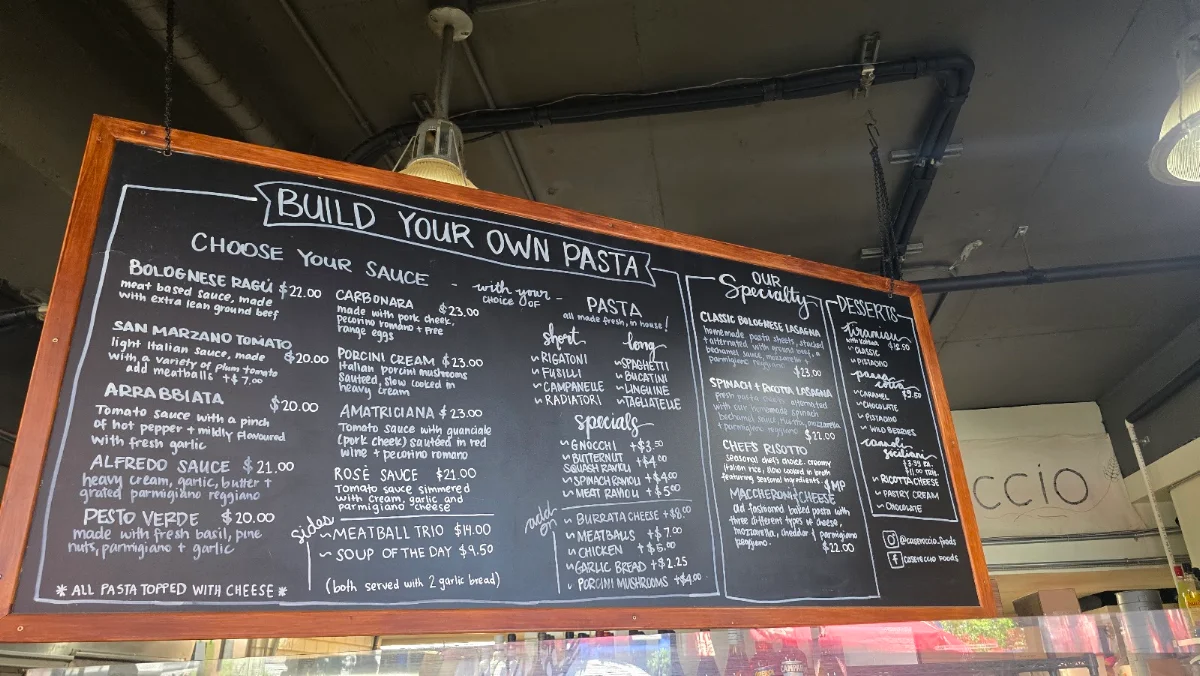 BUILD YOUR OWN PASTA
CHOOSE YOUR SAUCE
BOLOGNESE RAGÚ $22.00
meat based sauce, made
with extra lean ground beef
SAN MARZANO TOMATO
light Italian sauce, made $20.00
with a variety of plum tomato
add meatballs +$7.00
ARRABBIATA $20.00
Tomato sauce with a pinch
of hot pepper + mildly flavoured
with fresh garlic
ALFREDO SAUCE $21.00
heavy cream, garlic, butter +
grated parmigiano reggiano
PESTO VERDE $20.00
made with fresh basil, pine
nuts, parmigiano + garlic
* ALL PASTA TOPPED WITH CHEESE *
CARBONARA $23.00
made with pork cheek,
pecorino romano + free
range eggs
PORCINI CREAM $23.00
Italian porcini mushrooms
Sauteed, slow cooked in
heavy cream
AMATRICIANA $23.00
Tomato sauce with guanciale
(pork cheek) sautéed in red
wine + pecorino romano
ROSÉ SAUCE $21.00
Tomato sauce simmered
with cream, garlic and
parmigiano cheese
sides
~ MEATBALL TRIO $14.00
~ SOUP OF THE DAY $9.50
(both served with 2 garlic bread)
- with your -
CHOICE OF
PASTA
all made fresh, in house!
short
~ RIGATONI
~ FUSILLI
~ CAMPANELLE
~ RADIATORI
long
~ SPAGHETTI
~ BUCATINI
~ LINGUINE
~ TAGLIATELLE
specials
~ GNOCCHI +$3.50
~ BUTTERNUT +$4.00
SQUASH RAVIOLI
~ SPINACH RAVIOLI +$4.00
~ MEAT RAVIOLI +$5.00
add-on
~ BURRATA CHEESE +$8.00
~ MEATBALLS +$7.00
~ CHICKEN +$5.00
~ GARLIC BREAD +$2.25
~ PORCINI MUSHROOMS +$4.00
OUR
Specialty
CLASSIC BOLOGNESE LASAGNA
homemade pasta sheets, stacked
+ alternated with ground beef,
bechamel sauce, mozzarella +
parmigiano reggiano
$23.00
SPINACH + RICOTTA LASAGNA
fresh pasta sheets alternated
with our homemade spinach
bechamel sauce, ricotta, mozzarella
+ parmigiano reggiano $22.00
CHEF'S RISOTTO
seasonal chef's choice. creamy
italian rice, slow cooked in broth
featuring seasonal ingredients. $MP
MACCHERONI + CHEESE
old fashioned baked pasta with
three different types of cheese,
mozzarella, cheddar & parmigiano
reggiano.
$22.00
DESSERTS
tiramisu
~ CLASSIC
~ PISTACHIO
panna
cotta $9.50
~ CARAMEL
~ CHOCOLATE
~ PISTACHIO
~ WILD BERRIES
cannoli
siciliani
~ RICOTTA CHEESE
~ PASTRY CREAM
~ CHOCOLATE
@casereccio.foods
casereccio foods
ccio